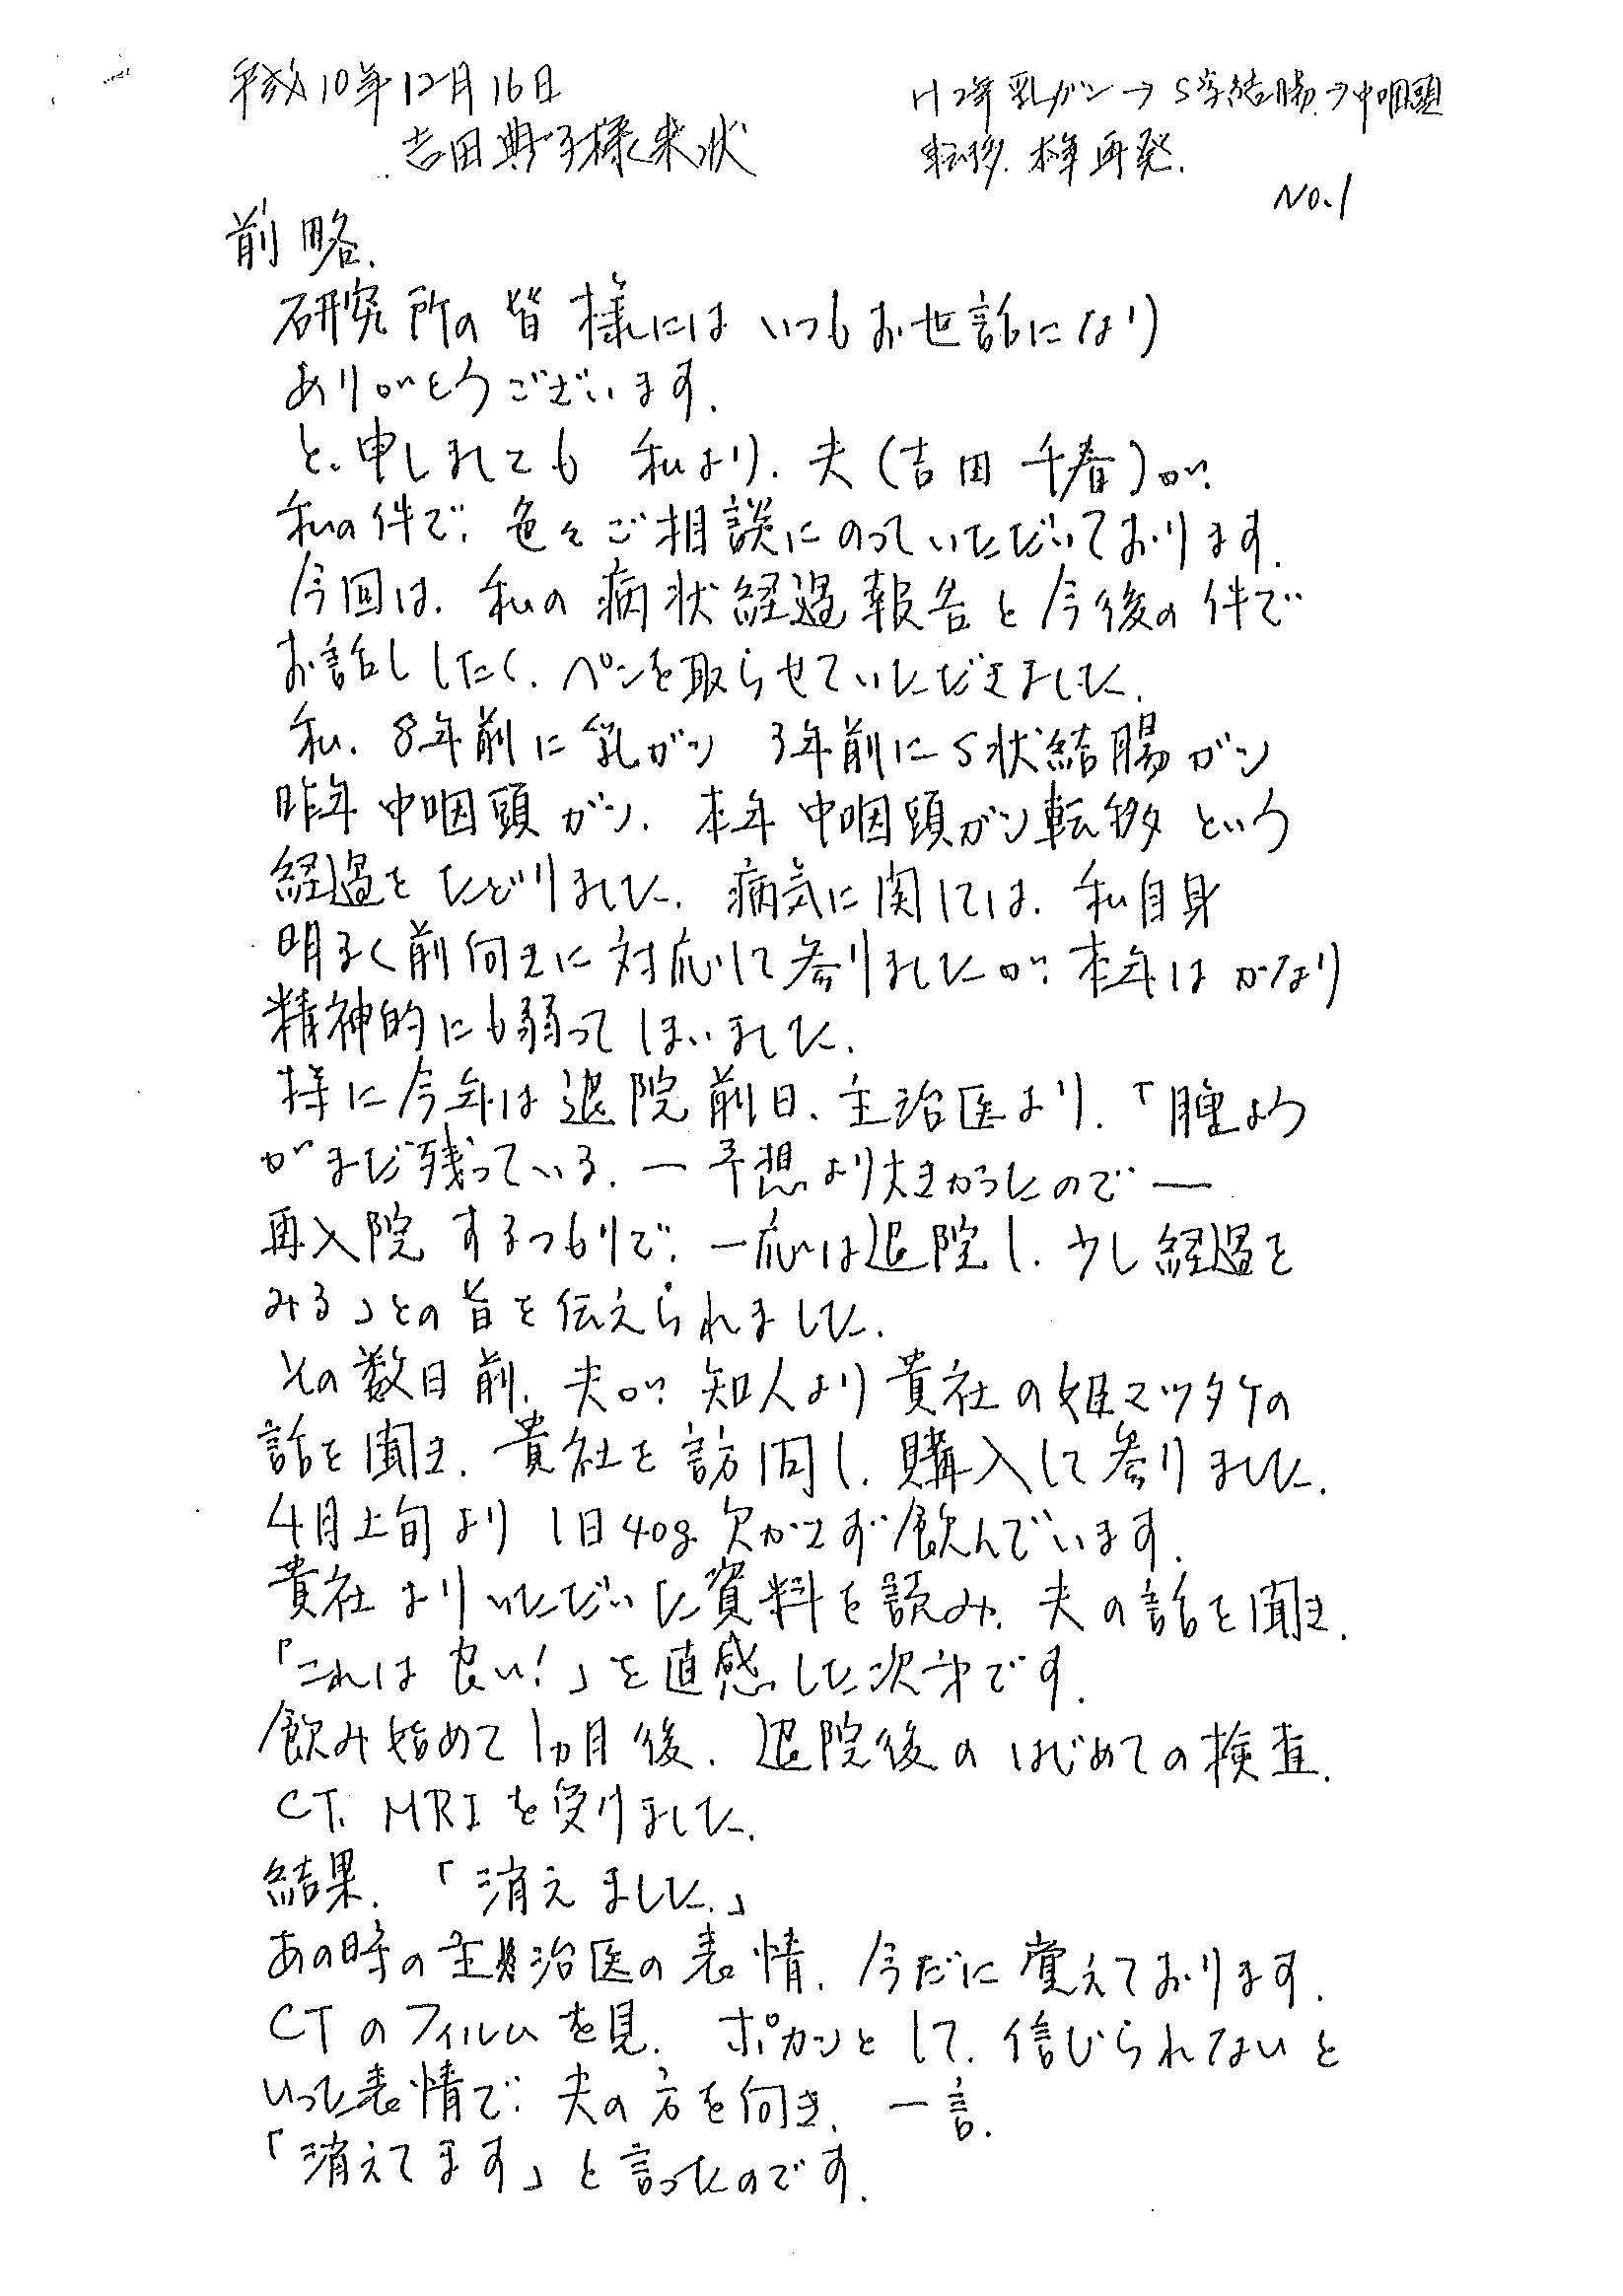 平成10年12月16日
吉田典子様来状
H2年乳ガン→S字結腸→中咽頭
転移.本年再発.
NO.1
前略.
研究所の皆様には いつもお世話になり
ありがとうございます.
と、申しましても 私より、夫(吉田 千春)が、
私の件で、色々ご相談にのっていただいております.
今回は、私の病状経過報告と今後の件で
お話ししたく、ペンを取らせていただきました.
私、8年前に乳ガン 3年前にS状結腸ガン
昨年中咽頭ガン、本年中咽頭ガン転移という
経過をたどりました. 病気に関しては、私自身
明るく前向きに対応して参りましたが、本年はかなり
精神的にも弱ってしまいました.
様に今年は退院前日、主治医より、「腫よう
がまだ残っている.ー予想より大きかったのでー
再入院するつもりで、一応は退院し、少し経過を
みる」との旨を伝えられました.
その数日前、夫が、知人より貴社の姫マツタケの
話を聞き、貴社を訪問し、購入して参りました.
4月上旬より 1日40g欠かさず飲んでいます.
貴社よりいただいた資料を読み、夫の話を聞き、
「これは良い!」を直感した次才です.
飲み始めて1カ月後、退院後のはじめての検査、
CT、MRIを受けました.
結果、「消えました.」
あの時の主治医の表情、今だに覚えております.
CTのフィルムを見、ポカンとして、信じられないと
いった表情で、夫の方を向き、一言.
「消えてます」と言ったのです.